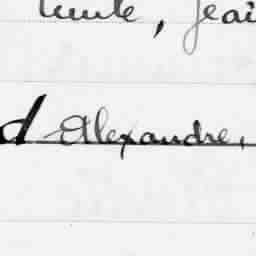 , Jea
d Alexandre,